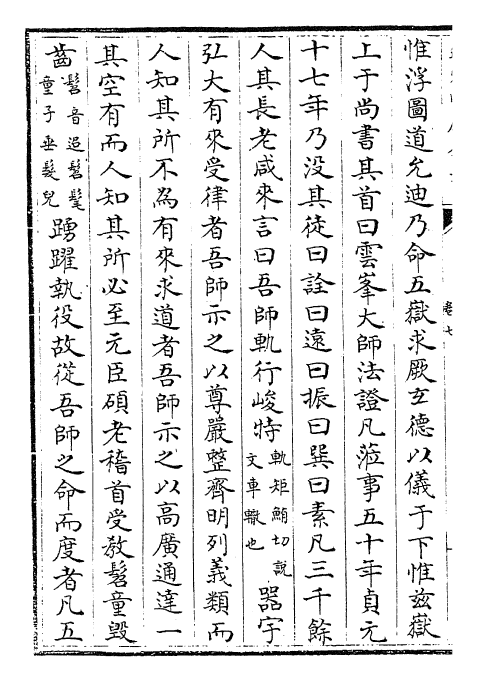 惟浮圖道允迪乃命五嶽求厥玄德以儀于下惟兹嶽
上于尚書其首曰雲峯大師法證凡蒞事五十年貞元
十七年乃没其徒曰詮曰遠曰振曰巽曰素凡三千餘
人其長老咸來言曰吾師軌行峻特軌矩鮪切説文車轍也器宇
弘大有來受律者吾師示之以尊嚴整齊明列義類而
人知其所不為有來求道者吾師示之以高廣通達一
其空有而人知其所必至元臣碩老稽首受教髫童毁
齒髫音迢髫髦童子垂髮皃踴躍執役故從吾師之命而度者凡五
卷七